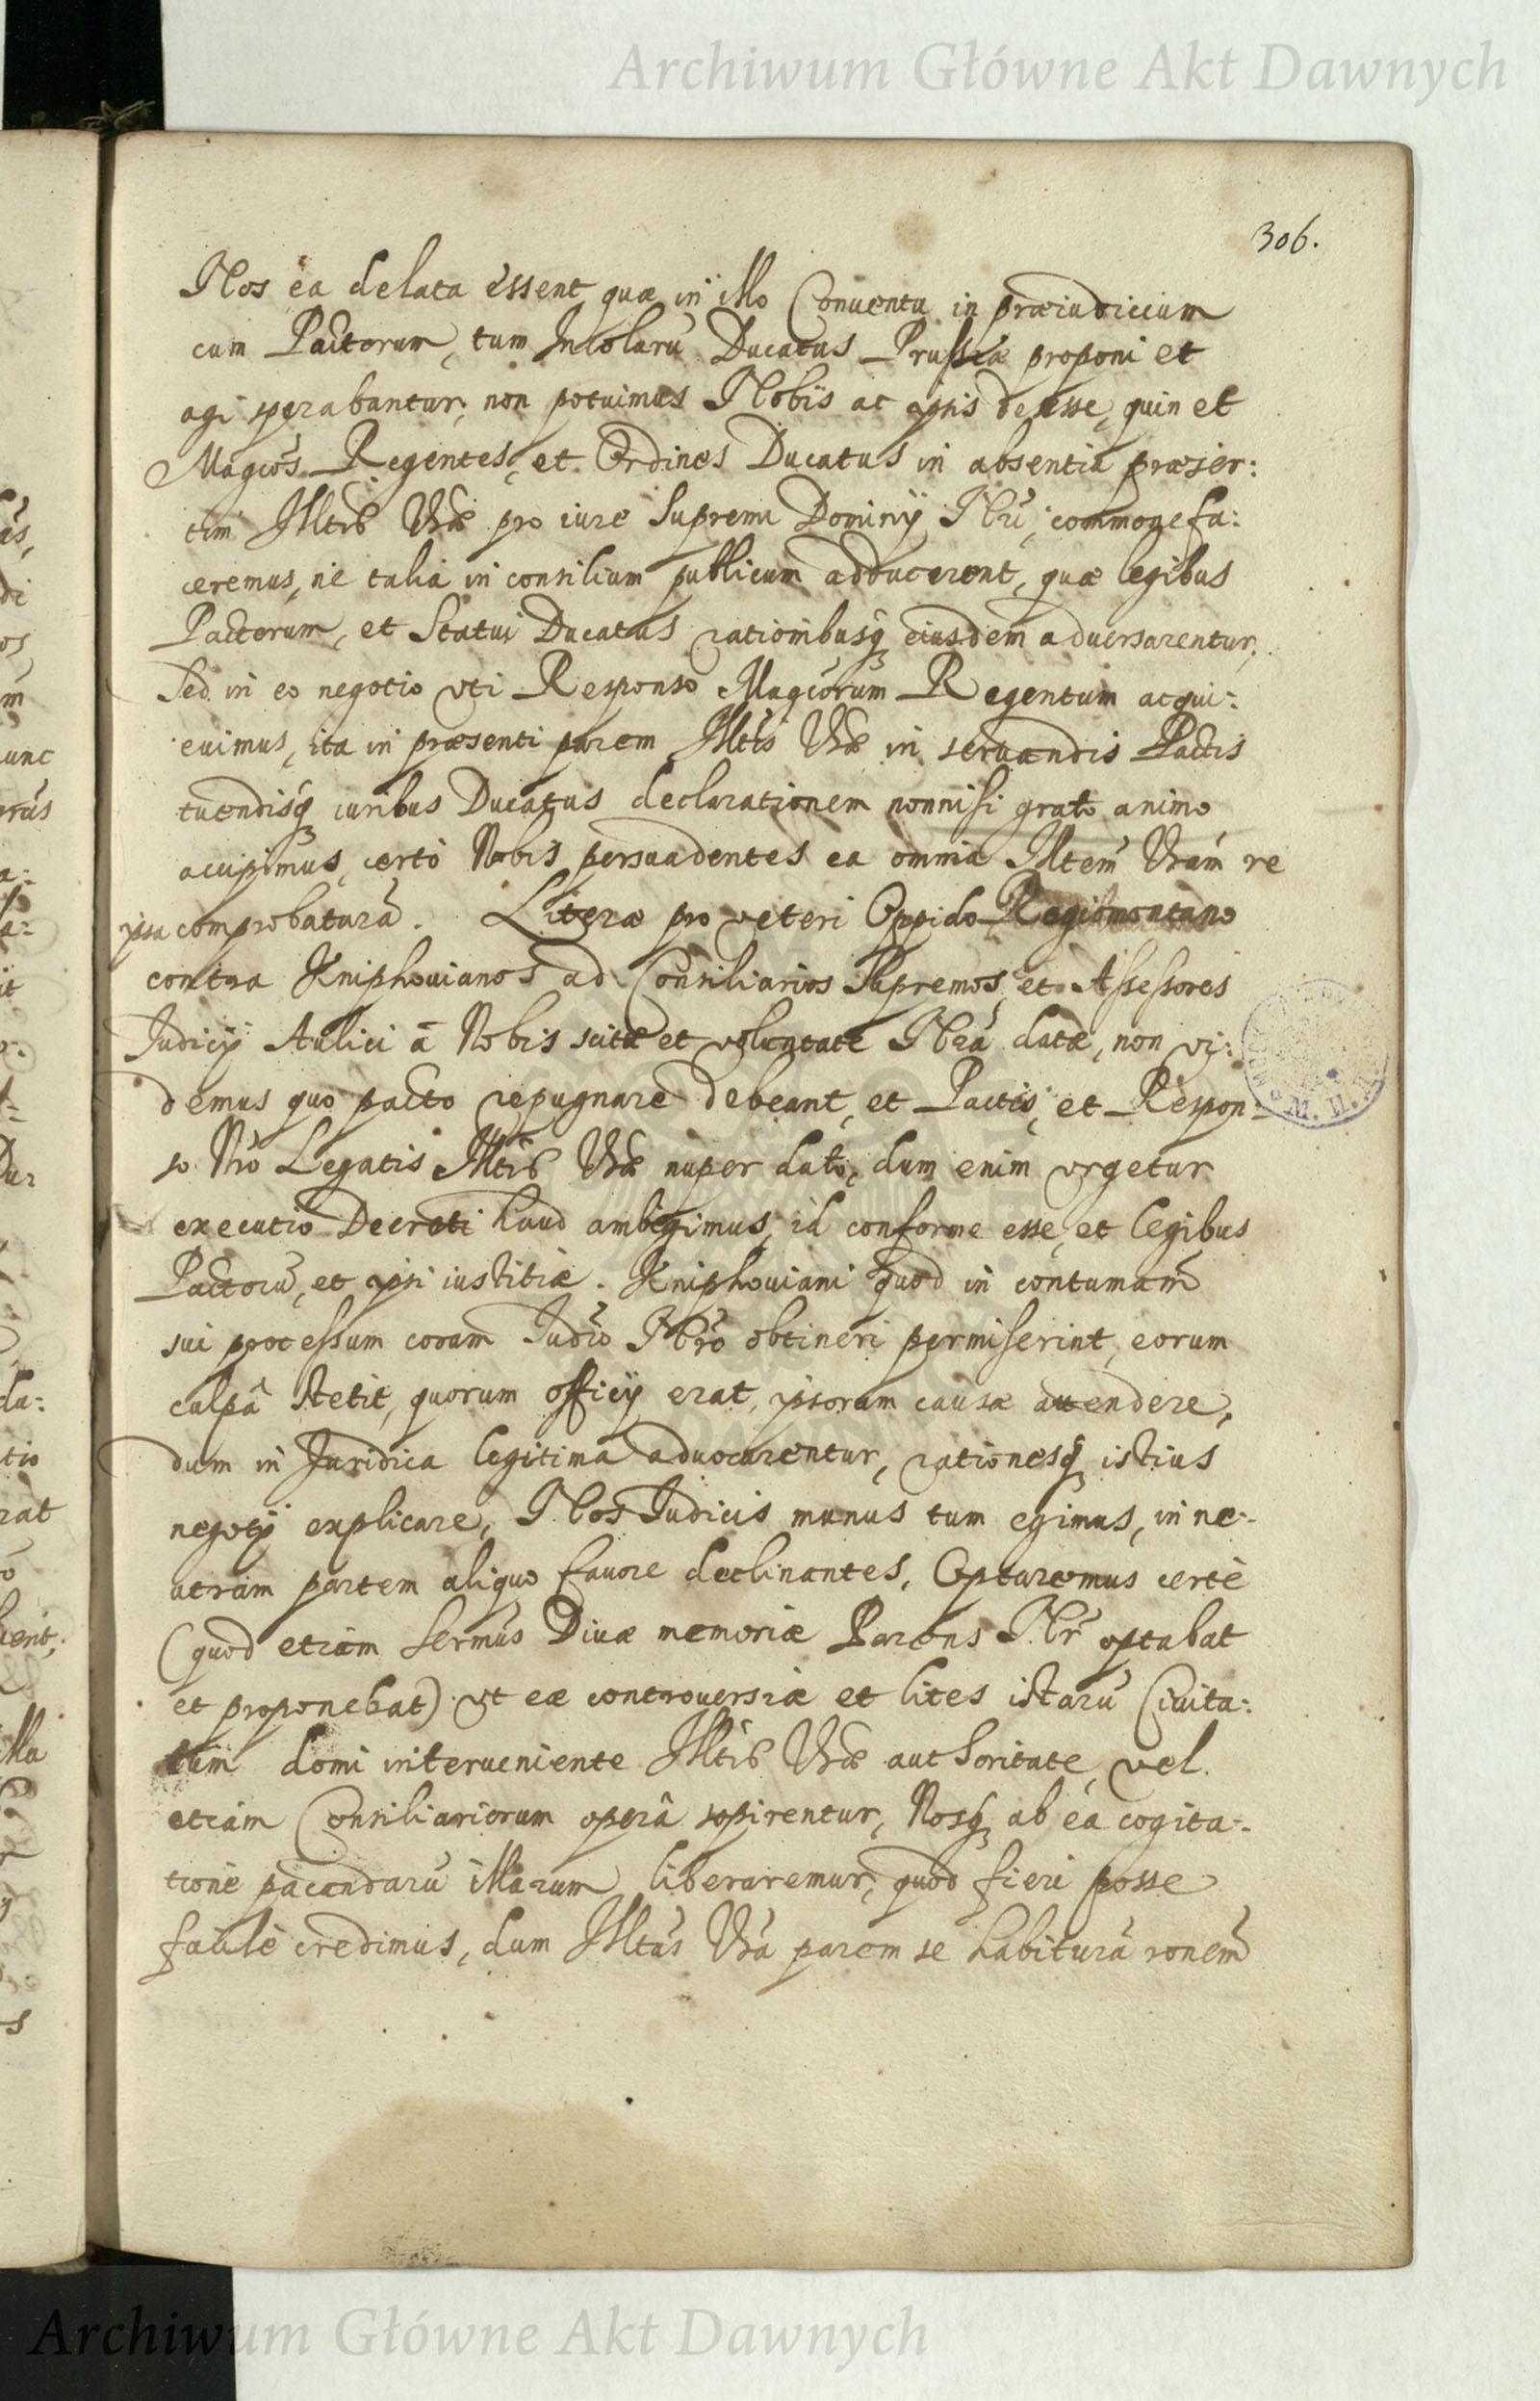 Archiwum Główne Akt Dawnych
306.
Nos ea delata essent, quæ in illo Conuentu in præiudicium
cum Pactorum, tum Incolarũ Ducatus Prussiæ proponi et
agi sperabantur, non potuimus Nobis ac ipsis deesse, quin et
Magcos Regentes, et Ordines Ducatus in absentia præser:
tim Illtis Vræ pro iure Supremi Dominij Nri, commonefa:
ceremus, ne talia in consilium publicum adducerent, quæ legibus
Pactorum, et Statui Ducatus rationibusq eiusdem aduersarentur,
Sed in eo negotio vti Responso Magcorum Regentum acqui:
euimus, ita in præsenti parem Illtis Vræ in seruandis Pactis
tuendisq iuribus Ducatus declarationem nonnisi grato animo
accipimus, certò Nobis persuadentes ea omnia Illtem Vram re
ipsa comprobaturã. Literæ pro veteri Oppido Regiomontano
contra Kniphouianos ad Consiliarios Supremos, et Assessores
Judicij Aulici à Nobis scitu et voluntate Nra datæ, non vi:
demus quo pacto repugnare debeant, et Pactis, et Respon-
so Nro Legatis Illtis Vræ nuper dato, dum enim vrgetur
executio Decreti haud ambigimus, id conforme esse, et legibus
Pactorũ, et ipsi iustitiæ. Kniphouiani quod in contumam
sui processum coram Judio Nro obtineri permiserint, eorum
culpâ stetit, quorum officij erat, ipsorum causæ attendere,
dum in Juridica legitima aduocarentur, rationesq istius
negotij explicare, Nos Judicis munus tum egimus, in ne:
utram partem aliquo fauore declinantes, Optaremus certè
(quod etiam Sermus Diuæ memoriæ Parens Nr optabat
et proponebat) vt eæ controuersiæ et lites istarũ Ciuita:
tum domi interueniente Illtis Vræ authoritate, vel
etiam Consiliariorum operâ sopirentur, Nosq ab ea cogita:
tione pacandarũ illarum liberaremur, quod fieri posse
facilè credimus, dum Illtas Vra parem se habiturã ronem
Archiwum Główne Akt Dawnych